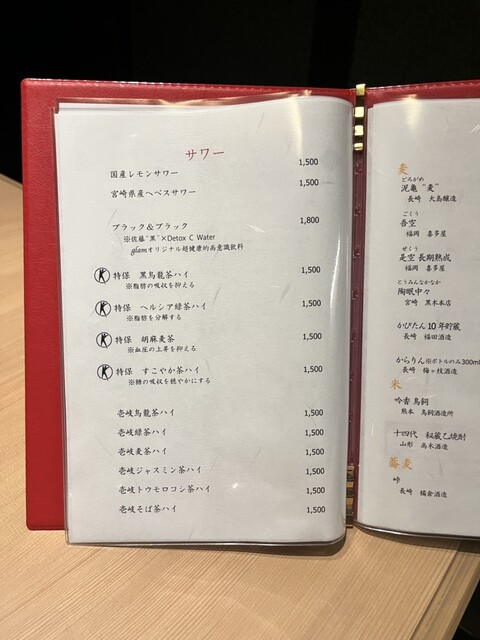 サワー
国産レモンサワー 1,500
宮崎県産へベスサワー 1,500
ブラック&ブラック 1,800
※佐藤"黒"×Detox C Water
glamオリジナル超健康的高意識飲料
特保 黒烏龍茶ハイ 1,500
※脂肪の吸収を抑える
特保 ヘルシア緑茶ハイ 1,500
※脂肪を分解する
特保 胡麻麦茶 1,500
※血圧の上昇を抑える
特保 すこやか茶ハイ 1,500
※糖の吸収を穏やかにする
壱岐烏龍茶ハイ 1,500
壱岐緑茶ハイ 1,500
壱岐麦茶ハイ 1,500
壱岐ジャスミン茶ハイ 1,500
壱岐トウモロコシ茶ハイ 1,500
壱岐そば茶ハイ 1,500
麦
どろがめ
泥亀 "麦"
長崎 大島醸造
ごくう
吾空
福岡 喜多屋
ぜくう
是空 長期熟成
福岡 喜多屋
とうみんなかなか
陶眠中々
宮崎 黒木本店
かぴたん 10年貯蔵
長崎 福田酒造
からりん※ボトルのみ300ml
長崎 梅ヶ枝酒造
米
吟香 鳥飼
熊本 鳥飼酒造所
十四代 秘蔵乙焼酎
山形 高木酒造
蕎麦
峠
長崎 橘倉酒造